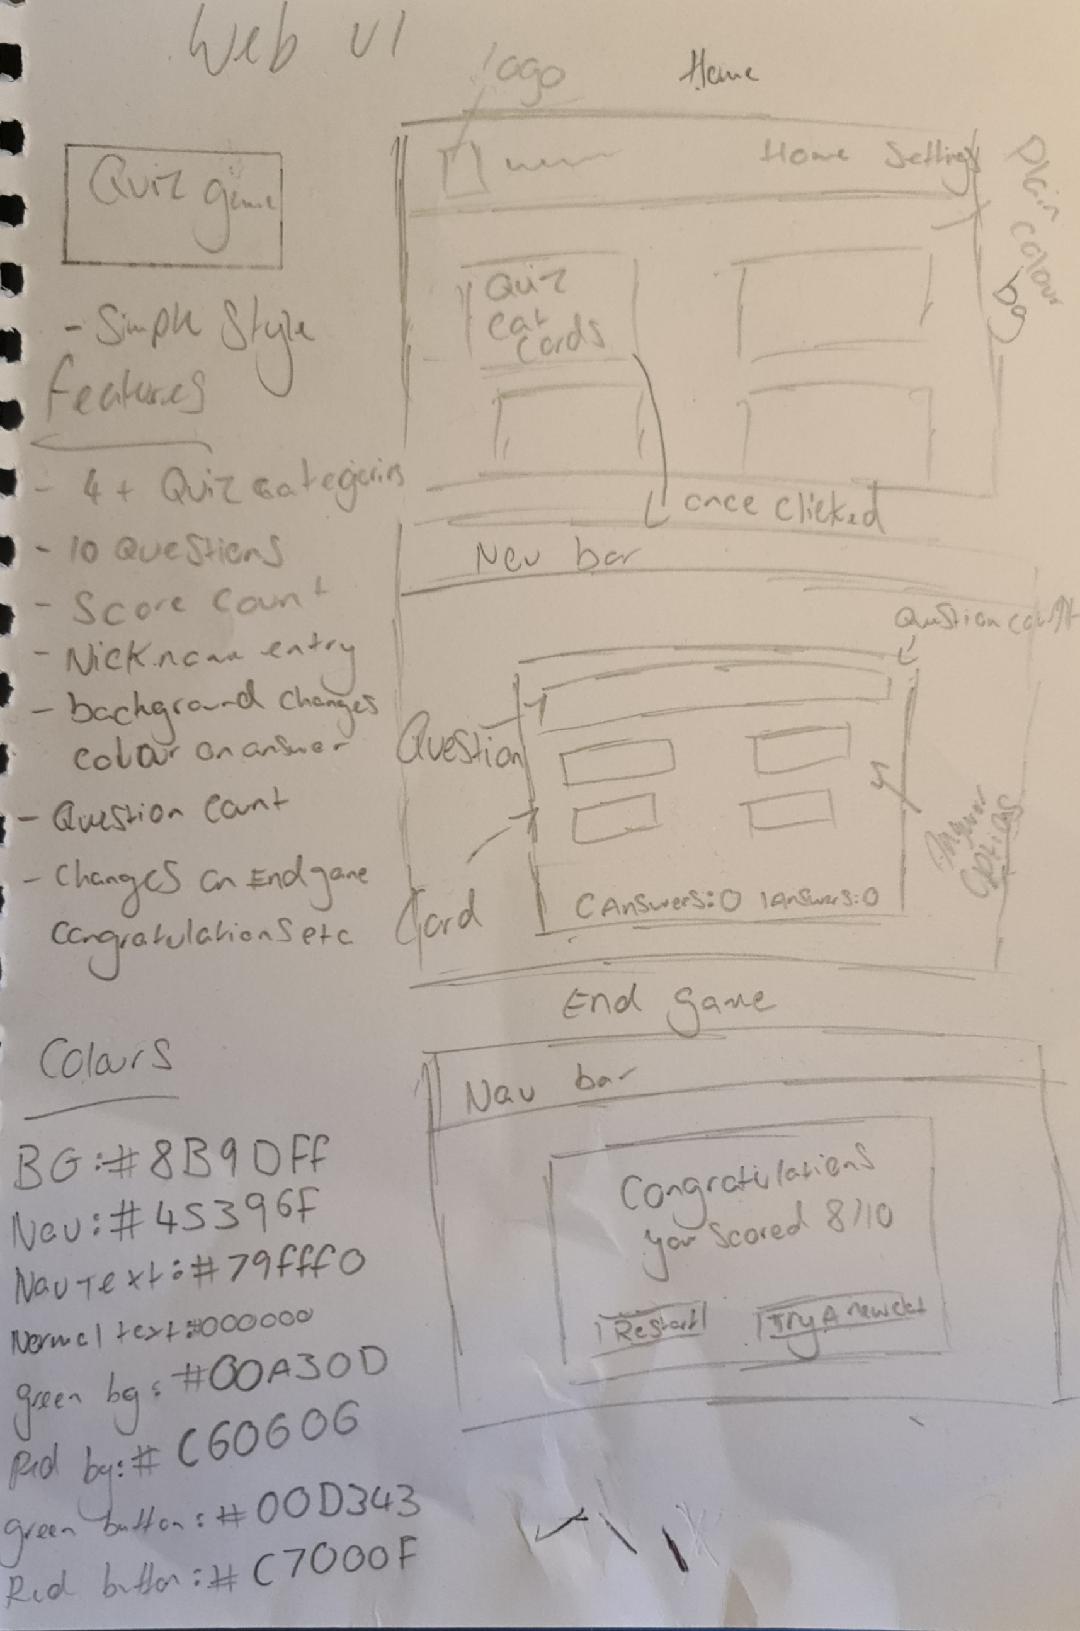 Web UI
Quiz game
- Simple Style
Features
- 4 + Quiz categories
- 10 Questions
- Score count
- Nickname entry
- background changes
colour on answer
- Question count
- Changes on End game
Congratulations etc
Colours
BG:#8B9DFF
Nav:#45396F
Nav Text:#79fff0
Normal text:#000000
green bg:#00A30D
Red bg:#C60606
green button:#00D343
Red button:#C7000F
logo
Home
Home Settings
Plain colour bg
Quiz
Cat
Cards
once clicked
Nav bar
Question count
Question
Answer options
Card
CAnswers:0 IAnswers:0
End game
Nav bar
Congratulations
you Scored 8/10
Restart
Try A new cat